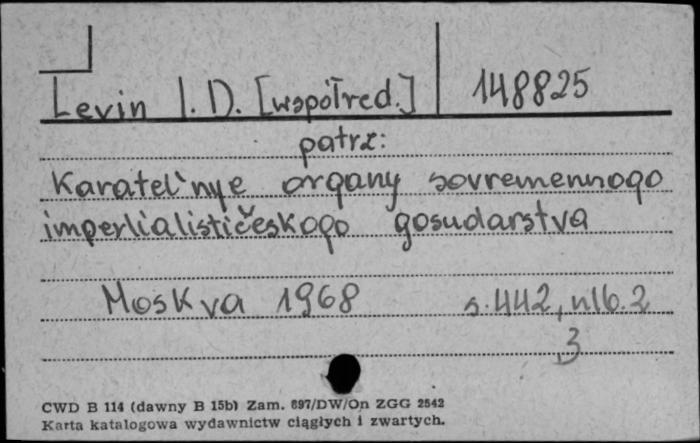 Levin I. D. [współred.] 148825
patrz:
Karatel'nye organy sovremennogo
imperlialističeskogo gosudarstva
Moskva 1968 s. 442, nlb. 2
3
CWD B 114 (dawny B 15b) Zam. 697/DW/On ZGG 2542
Karta katalogowa wydawnictw ciągłych i zwartych.